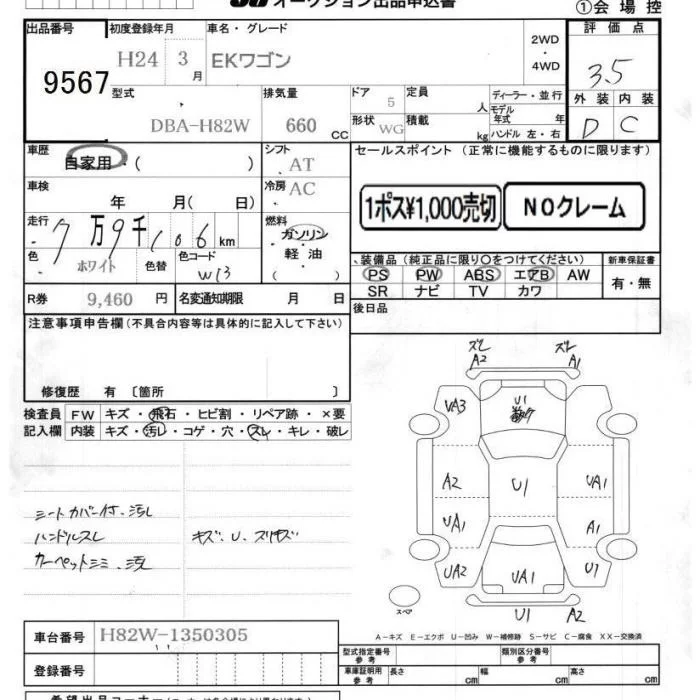 オークション出品申込書
①会場控
出品番号 初度登録年月 車名・グレード 評価点
H24 3月 EKワゴン 2WD・4WD 3.5
9567
型式 排気量 ドア 定員 ディーラー・並行
5 人 モデル年式 年 外装 内装
DBA-H82W 660 CC 形状 WG 積載 kg ハンドル 左・右 D C
車歴 シフト セールスポイント (正常に機能するものに限ります)
自家用・( ) AT
車検 冷房 AC
年 月( 日) 1ポス¥1,000売切 NOクレーム
走行 燃料
7万9千106km ガソリン・軽油
色 ホワイト 色替 色コード W13 ( )
、装備品(純正品に限り○をつけてください) 新車保証書
PS PW ABS エアB AW 有・無
SR ナビ TV カワ
R券 9,460円 名変通知期限 月 日
後日品
注意事項申告欄(不具合内容等は具体的に記入して下さい)
修復歴 有〔箇所 〕
検査員記入欄 FW キズ・飛石・ヒビ割・リペア跡・×要
内装 キズ・汚レ・コゲ・穴・スレ・キレ・破レ
シートカバー付.汚レ
ハンドルスレ キズ.U.スリキズ
カーペットシミ.汚レ
ズレ ズレ
A2 A1
VA3 U1
A2 U1 UA1
UA1 A1
UA2 UA1 U1
スペア
U1 A2
A-キズ E-エクボ U-凹み W-補修跡 S-サビ C-腐食 XX-交換済
車台番号 H82W-1350305
型式指定番号 参考 類別区分番号 参考
登録番号 車庫証明用 参考 長さ cm 幅 cm 高さ cm